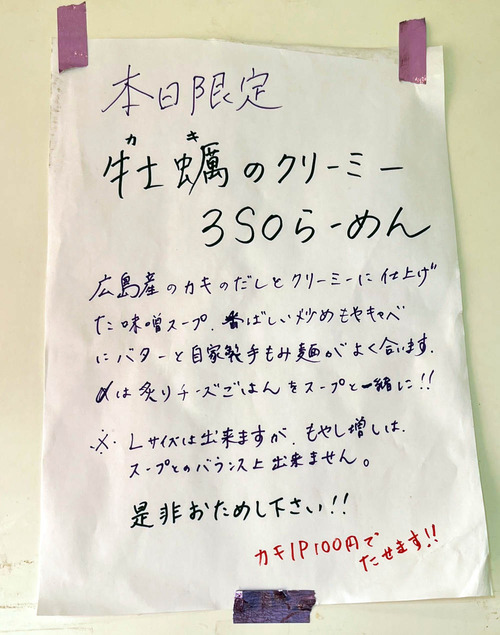 本日限定
カキ
牡蠣のクリーミー
3SOらーめん
広島産のカキのだしとクリーミーに仕上げ
た味噌スープ、香ばしい炒めもやキャベ
にバターと自家製手もみ麺がよく合います。
〆は炙りチーズごはんをスープと一緒に!!
※. Lサイズは出来ますが、もやし増しは、
スープとのバランス上出来ません。
是非おためし下さい!!
カキ1P100円で
たせます!!